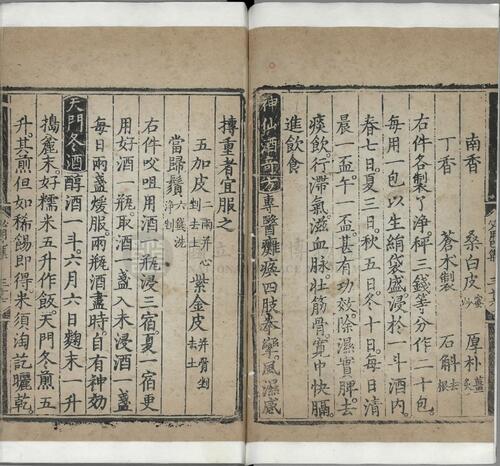 南香 桑白皮蜜炒 厚朴薑炙
丁香 蒼木製 石斛去根
右件各製了淨秤三錢等分作二十包
每用一包以生絹袋盛浸於一斗酒内
春七日夏三日秋五日冬十日每日清
晨一盃午一盃甚有功效除濕實脾去
痰飲行滯氣滋血脉壯筋骨寬中快膈
進飲食
神仙酒奇方專醫癱瘓四肢拳攣風濕感
搏重者宜服之
五加皮一兩并心剉去土 紫金皮并骨剉去土
當歸鬚六錢洗淨剉
右件㕮咀用酒一瓶浸三宿夏一宿更
用好酒一瓶取酒一盞入未浸酒一盞
每日兩盞煖服兩瓶酒盡時自有神効
天門冬酒醇酒一斗六月六日麴末一升
搗麄末好糯米五升作飯天門冬煎五
升其煎但如稀餳即得米須淘訖曬乾